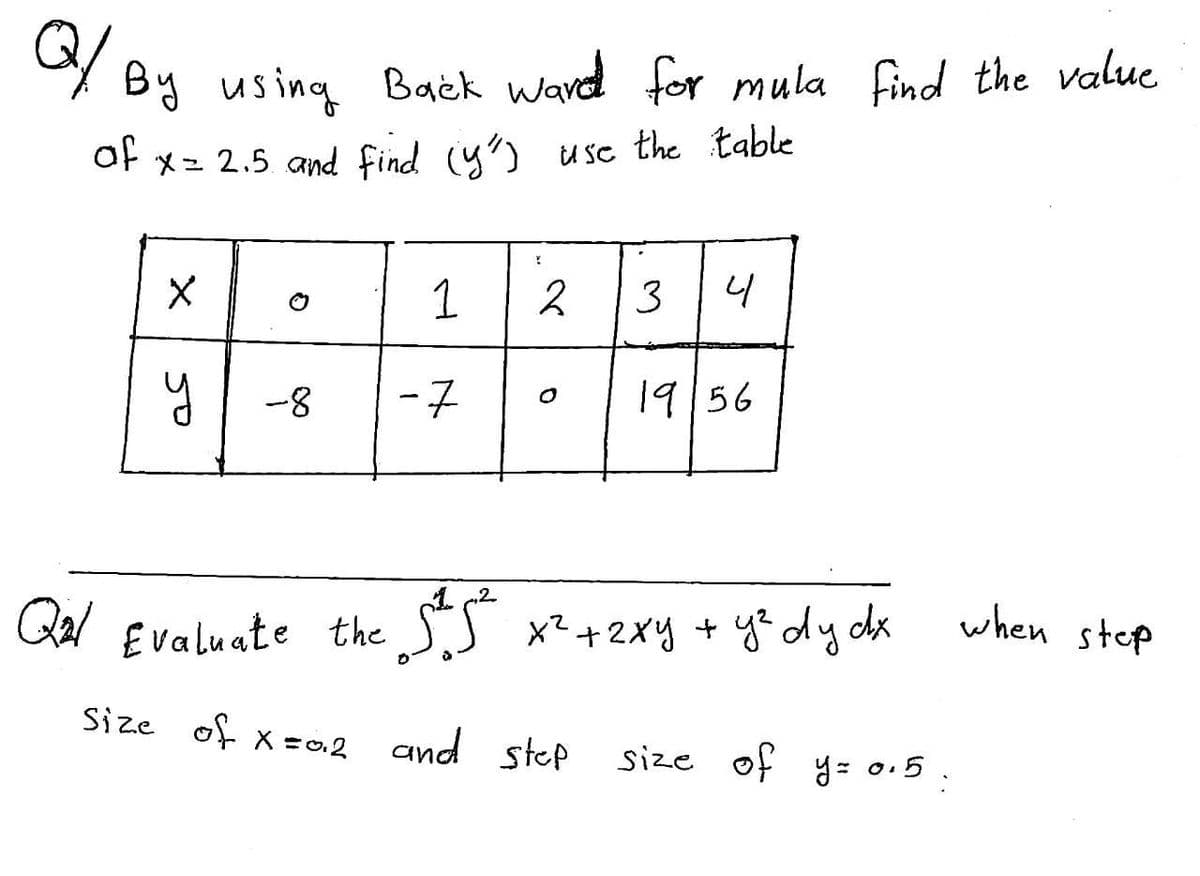 Q/ By using Back ward for mula find the value
of x= 2.5 and find (y") use the table
x 0 1 2 3 4
y -8 -7 0 19 56
Q2/ Evaluate the ∫₀¹∫₀² x²+2xy + y² dy dx when step
Size of x=0.2 and step size of y= 0.5.